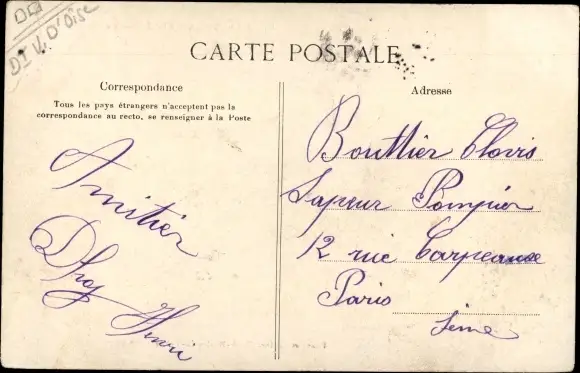 DI V. D'Oise
CARTE POSTALE
Correspondance
Tous les pays étrangers n'acceptent pas la
correspondance au recto, se renseigner à la Poste
Amitiér
Henri
Adresse
Bouttier Clovis
Sapeur Pompier
12 rue Carpeause
Paris
Seine